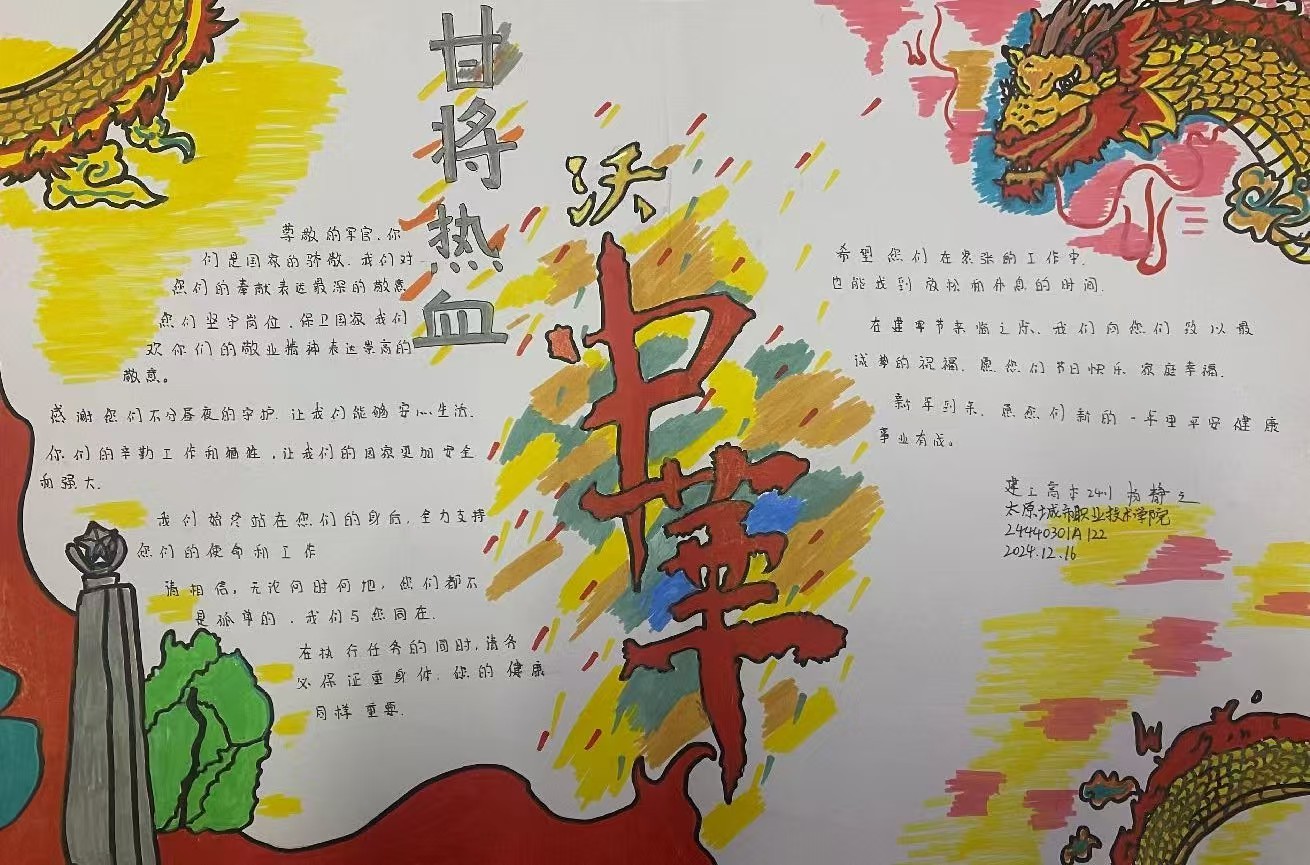 甘将热血
沃中華
尊敬的军官,你
们是国家的骄傲.我们对
您们的奉献表达最深的敬意
您们坚守岗位,保卫国家我们
对你们的敬业精神表达崇高的
敬意。
感谢您们不分昼夜的守护.让我们能够安心生活.
你们的辛勤工作和牺牲,让我们的国家更加安全
和强大.
我们始终站在您们的身后,全力支持
您们的使命和工作
请相信,无论何时何地,您们都不
是孤单的.我们与您同在.
在执行任务的同时,请务
必保证重身体.您的健康
同样重要.
希望您们在紧张的工作中.
也能找到放松和休息的时间.
在建军节来临之际、我们向您们致以最
诚挚的祝福.愿您们节日快乐 家庭幸福.
新年到来.愿您们新的一年里平安健康
事业有成。
建工高本24-1 杨静
太原城市职业技术学院
24440301A122
2024.12.16